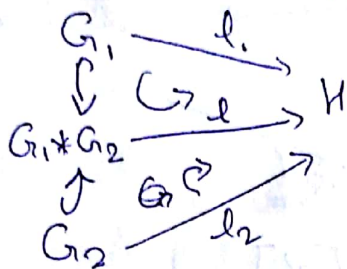 G₁ l₁
G₁*G₂ l H
G₂ l₂